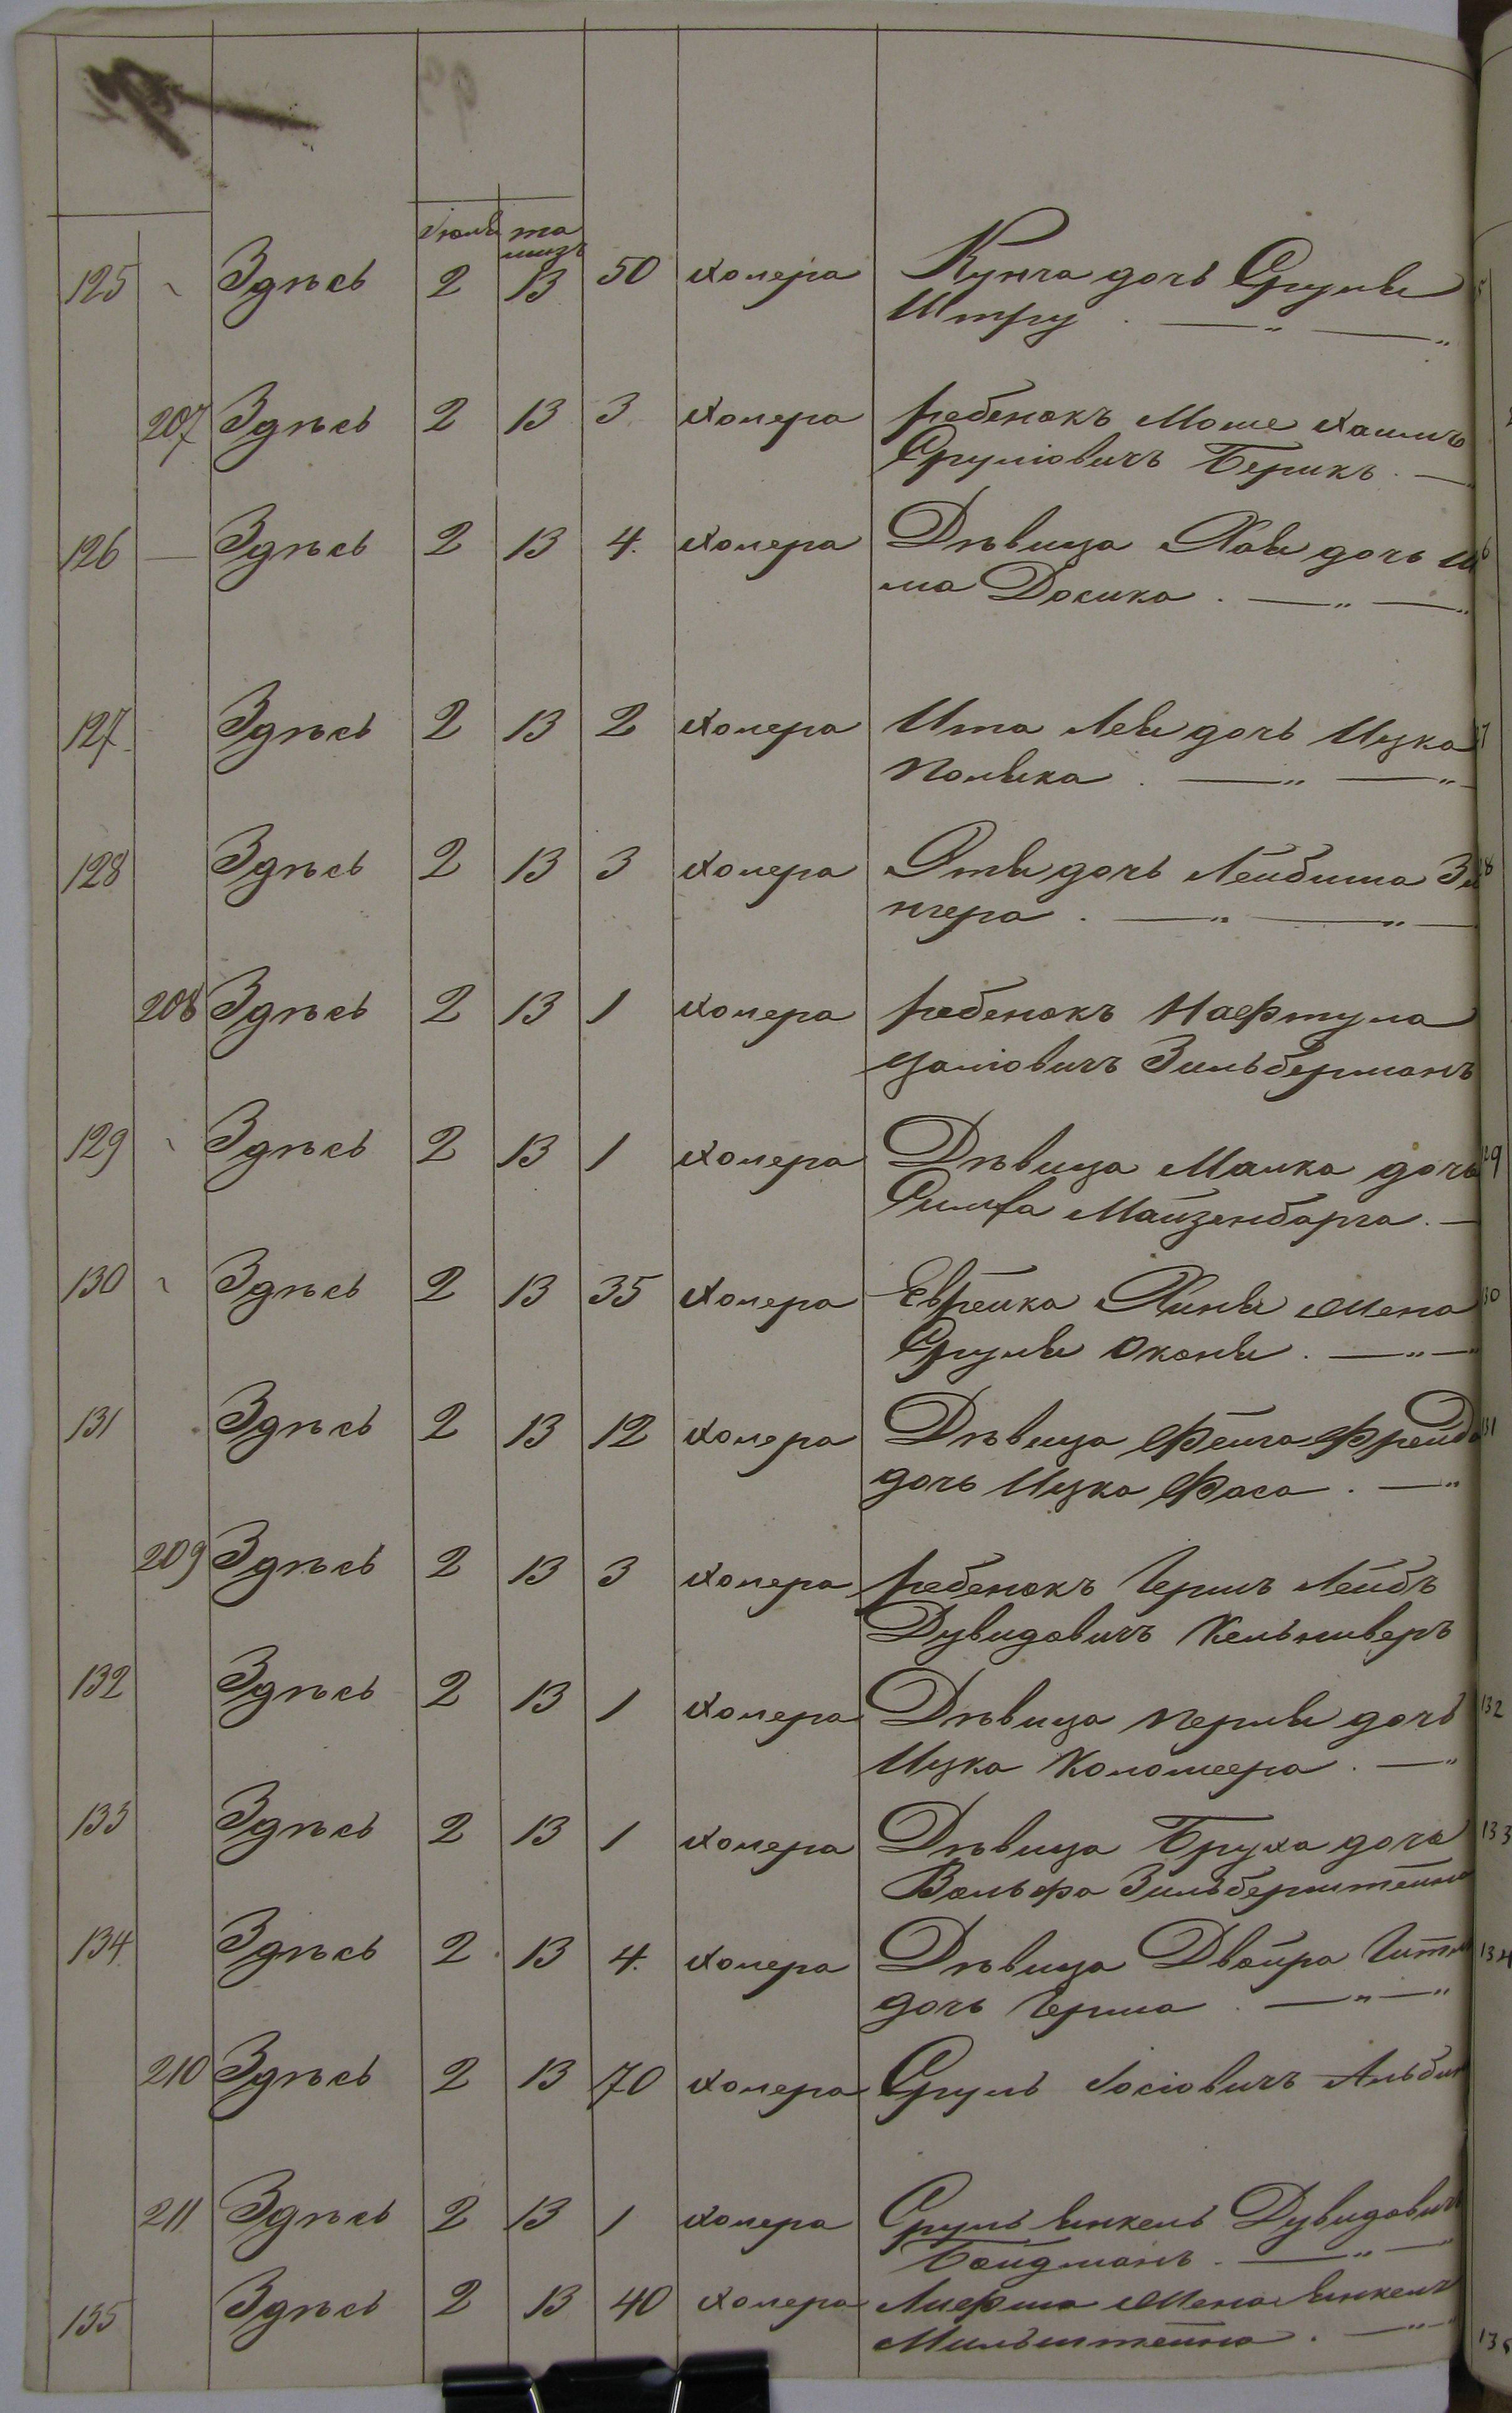 Іюль та
мизъ
125 Здѣсь 2 13 50 холера Кунча дочь Сруля
Штру
207 Здѣсь 2 13 3 холера ребенокъ Моше Хаимъ
Сруліовичъ Берикъ
126 — Здѣсь 2 13 4. холера Дѣвица Хая дочь
ма Досика
127 Здѣсь 2 13 2 холера Ита Лея дочь Ицка
Поляка
128 Здѣсь 2 13 3 холера Этя дочь Лейбиша Зи
нгера
208 Здѣсь 2 13 1 холера ребенокъ Нафтула
Цаліовичъ Зильберманъ
129 Здѣсь 2 13 1 холера Дѣвица Малка дочь 129
Симха Майзенбарга
130 Здѣсь 2 13 35 холера Еврейка Хиня жена 30
Сруля Оконя
131 Здѣсь 2 13 12 холера Дѣвица Фейга Фрейда 131
дочь Ицка Фаса
209 Здѣсь 2 13 3 холера ребенокъ Гершъ Лейбъ
Дувидовичъ Кельниверъ
132 Здѣсь 2 13 1 холера Дѣвица Перля дочь 132
Ицка Коломеера
133 Здѣсь 2 13 1 холера Дѣвица Бруха дочь 133
Вольфа Зильберштейна
134 Здѣсь 2 13 4. холера Дѣвица Двойра Гитля 134
дочь Герша
210 Здѣсь 2 13 70 холера Сруль Іосіовичъ
211 Здѣсь 2 13 1 холера Сруль Янкель Дувидовичъ
Бойдманъ
135 Здѣсь 2 13 40 холера жена Янкеля
Мильштейна 135